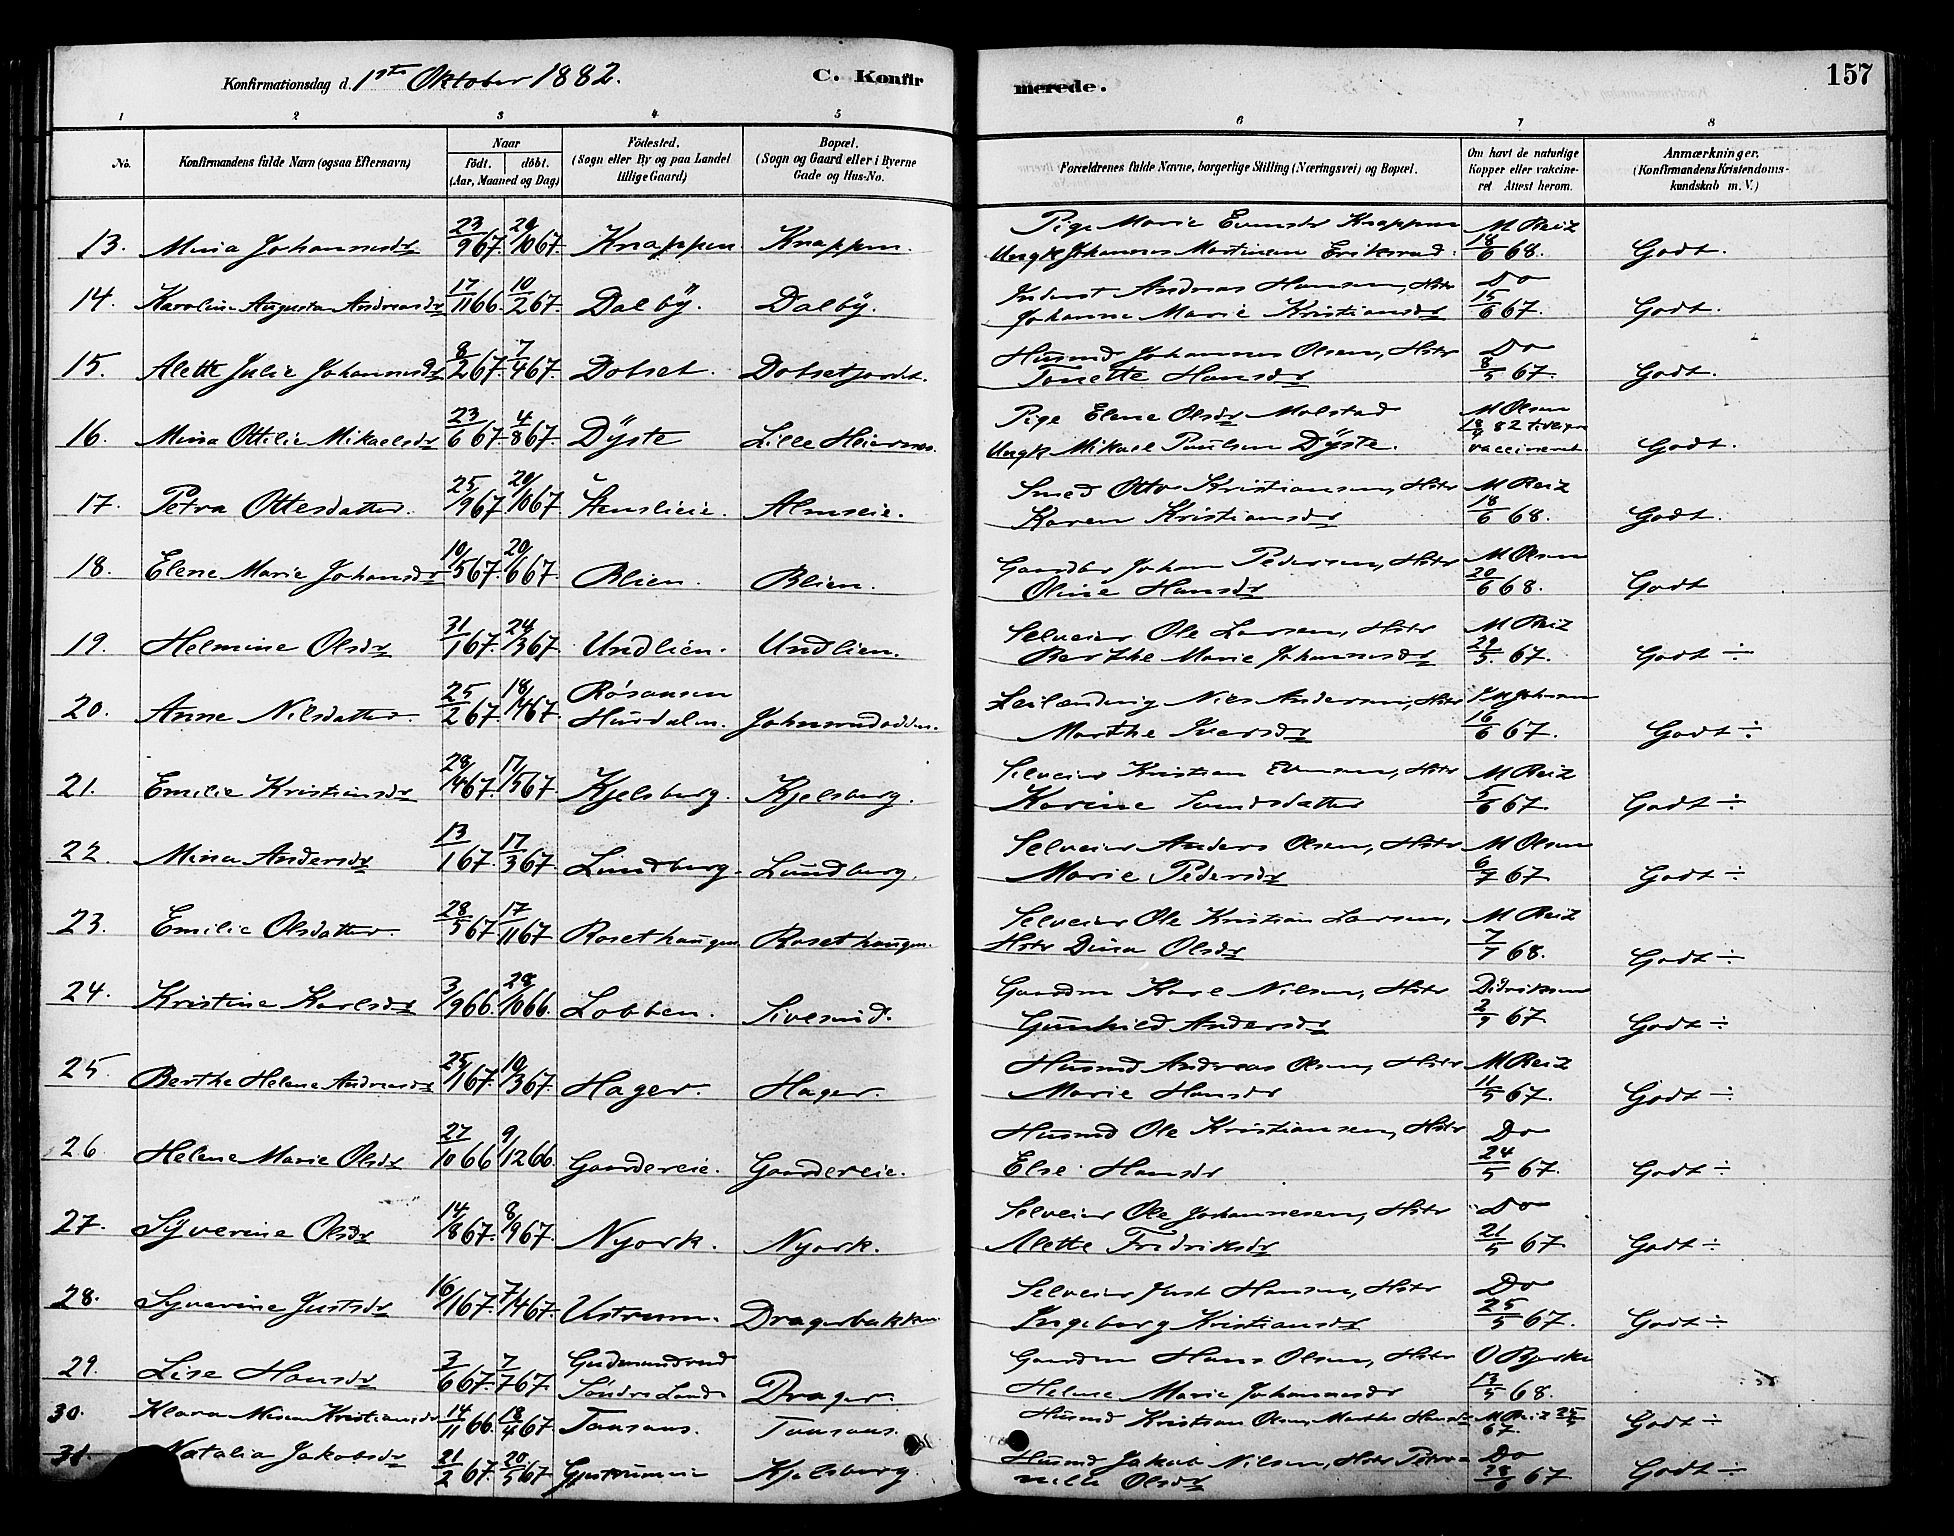 Konfirmationsdag d. 1ste Oktober 1882. C. Konfirmerede. 157
1 2 3 4 5 6 7 8
No. Konfirmandens fulde Navn (ogsaa Efternavn) Naar födt. döbt. (Aar, Maaned og Dag) Födested. (Sogn eller By og paa Landet tillige Gaard) Bopæl. (Sogn og Gaard eller i Byerne Gade og Hus-No. Forældrenes fulde Navne, borgerlige Stilling (Næringsvei) og Bopæl. Om havt de naturlige Kopper eller vakcineret. Attest herom. Anmærkninger. (Konfirmandens Kristendomskundskab m. V.)
13. Mina Johannesdr 23/9 67. 20/10 67. Knappen Knappen. Pige Marie Evensdr Knappen M Reiz
Ungk Johannes Martinsen Eriksrud. 18/6 68. Godt.
14. Karoline Augusta Andreasdr 17/11 66. 10/2 67. Dalby. Dalby. Inderst Andreas Hansen, Hstr Do
Johanne Marie Kristiansdr 15/6 67. Godt.
15. Alette Julie Johannesdr 8/2 67. 7/4 67. Dotset. Dotsetjordet. Husmd Johannes Olsen, Hstr Do
Tonette Hansdr 8/5 67. Godt.
16. Mina Ottilie Mikaelsdr 23/6 67. 4/8 67. Dyste Lille Heiernes. Pige Elene Olsdr Molstad M Olsen
Ungk Mikael Paulsen Dyste. 82 vaccineret. Godt.
17. Petra Ottesdatter. 25/9 67 20/10 67. Almseie. Smed Otto Kristiansen, Hstr M Reiz
Karen Kristiansdr 18/6 68. Godt.
18. Elene Marie Johansdr 10/5 67. 20/6 67. Blien. Blien. Gaardbr Johan Pedersen, Hstr M Olsen
Oline Hansdr 20/6 68. Godt
19. Helmine Olsdr 31/1 67. 24/3 67 Undlien. Undlien. Selveier Ole Larsen, Hstr M Reiz
Berthe Marie Johannesdr 29/5. 67. Godt ÷
20. Anne Nilsdatter. 25/2 67. 18/4 67. Hurdalen. Johnsrudodden. Leilænding Nils Andersen, Hstr Johnsen
Marthe Iversdr 16/6 67. Godt ÷
21. Emilie Kristiansdr 28/4 67. 17/5 67 Kjelsberg. Kjelsberg. Selveier Kristian Evensen, Hstr M Reiz
Karine 5/6 67. Godt ÷
22. Mina Andersdr 13/1 67. 17/3 67. Lundberg. Lundberg. Selveier Anders Olsen, Hstr M Olsen
Marie Pedersdr 6/7 67 Godt ÷
23. Emilie Olsdatter. 28/5 67 17/11 67 Rosethaugen Rosethaugen. Selveier Ole Kristian Larsen, M Reiz
Hstr Dina Olsdr 7/7 68. Godt ÷
24. Kristine Karlsdr 3/9 66. 28/10 66. Lobben. Sivesind. Gaardm Karl Nilsen, Hstr Didriksen
Gunhild Andersdr 2/9 67. Godt ÷
25. Berthe Helene Andreasdr 25/1 67. 10/3 67. Hager. Hager. Husmd Andreas Olsen, Hstr M Reiz
Marie Hansdr 11/5 67. Godt ÷
26. Helene Marie Olsdr 27/10 66 9/12 66. Gaardereie. Gaardereie. Husmd Ole Kristiansen, Hstr Do
Else Hansdr 24/5 67. Godt ÷
27. Syverine Olsdr 14/8 67. 8/9 67. Nyork. Nyork. Selveier Ole Johannesen, Hstr Do
Alette Fredriksdr 21/5 67. Godt ÷
28. Syverine Justsdr 16/1 67. 7/4 67. Ustrumm. Dragerbakken. Selveier Just Hansen, Hstr Do
Ingeborg Kristiansdr 25/5 67. Godt ÷
29. Lise Hansdr 3/6 67. 7/7 67. Gudmandrud Söndre Land Drager. Gaardm Hans Olsen, Hstr O Bjerke
Helene Marie Johannesdr 13/5 68.
30. Klara Mina Kristiansdr 14/11 66. 18/4 67. Tonsaas. Tonsaas. Husmd Kristian Olsen, Marthe Hansdr M Reiz 25/5 67. Godt ÷
31. Natalia Jakobsdr 21/2 67. 20/5 67 Kjelsberg. Husmd Jakob Nilsen, Hstr Peternille Olsdr Do 28/6 67 Godt ÷